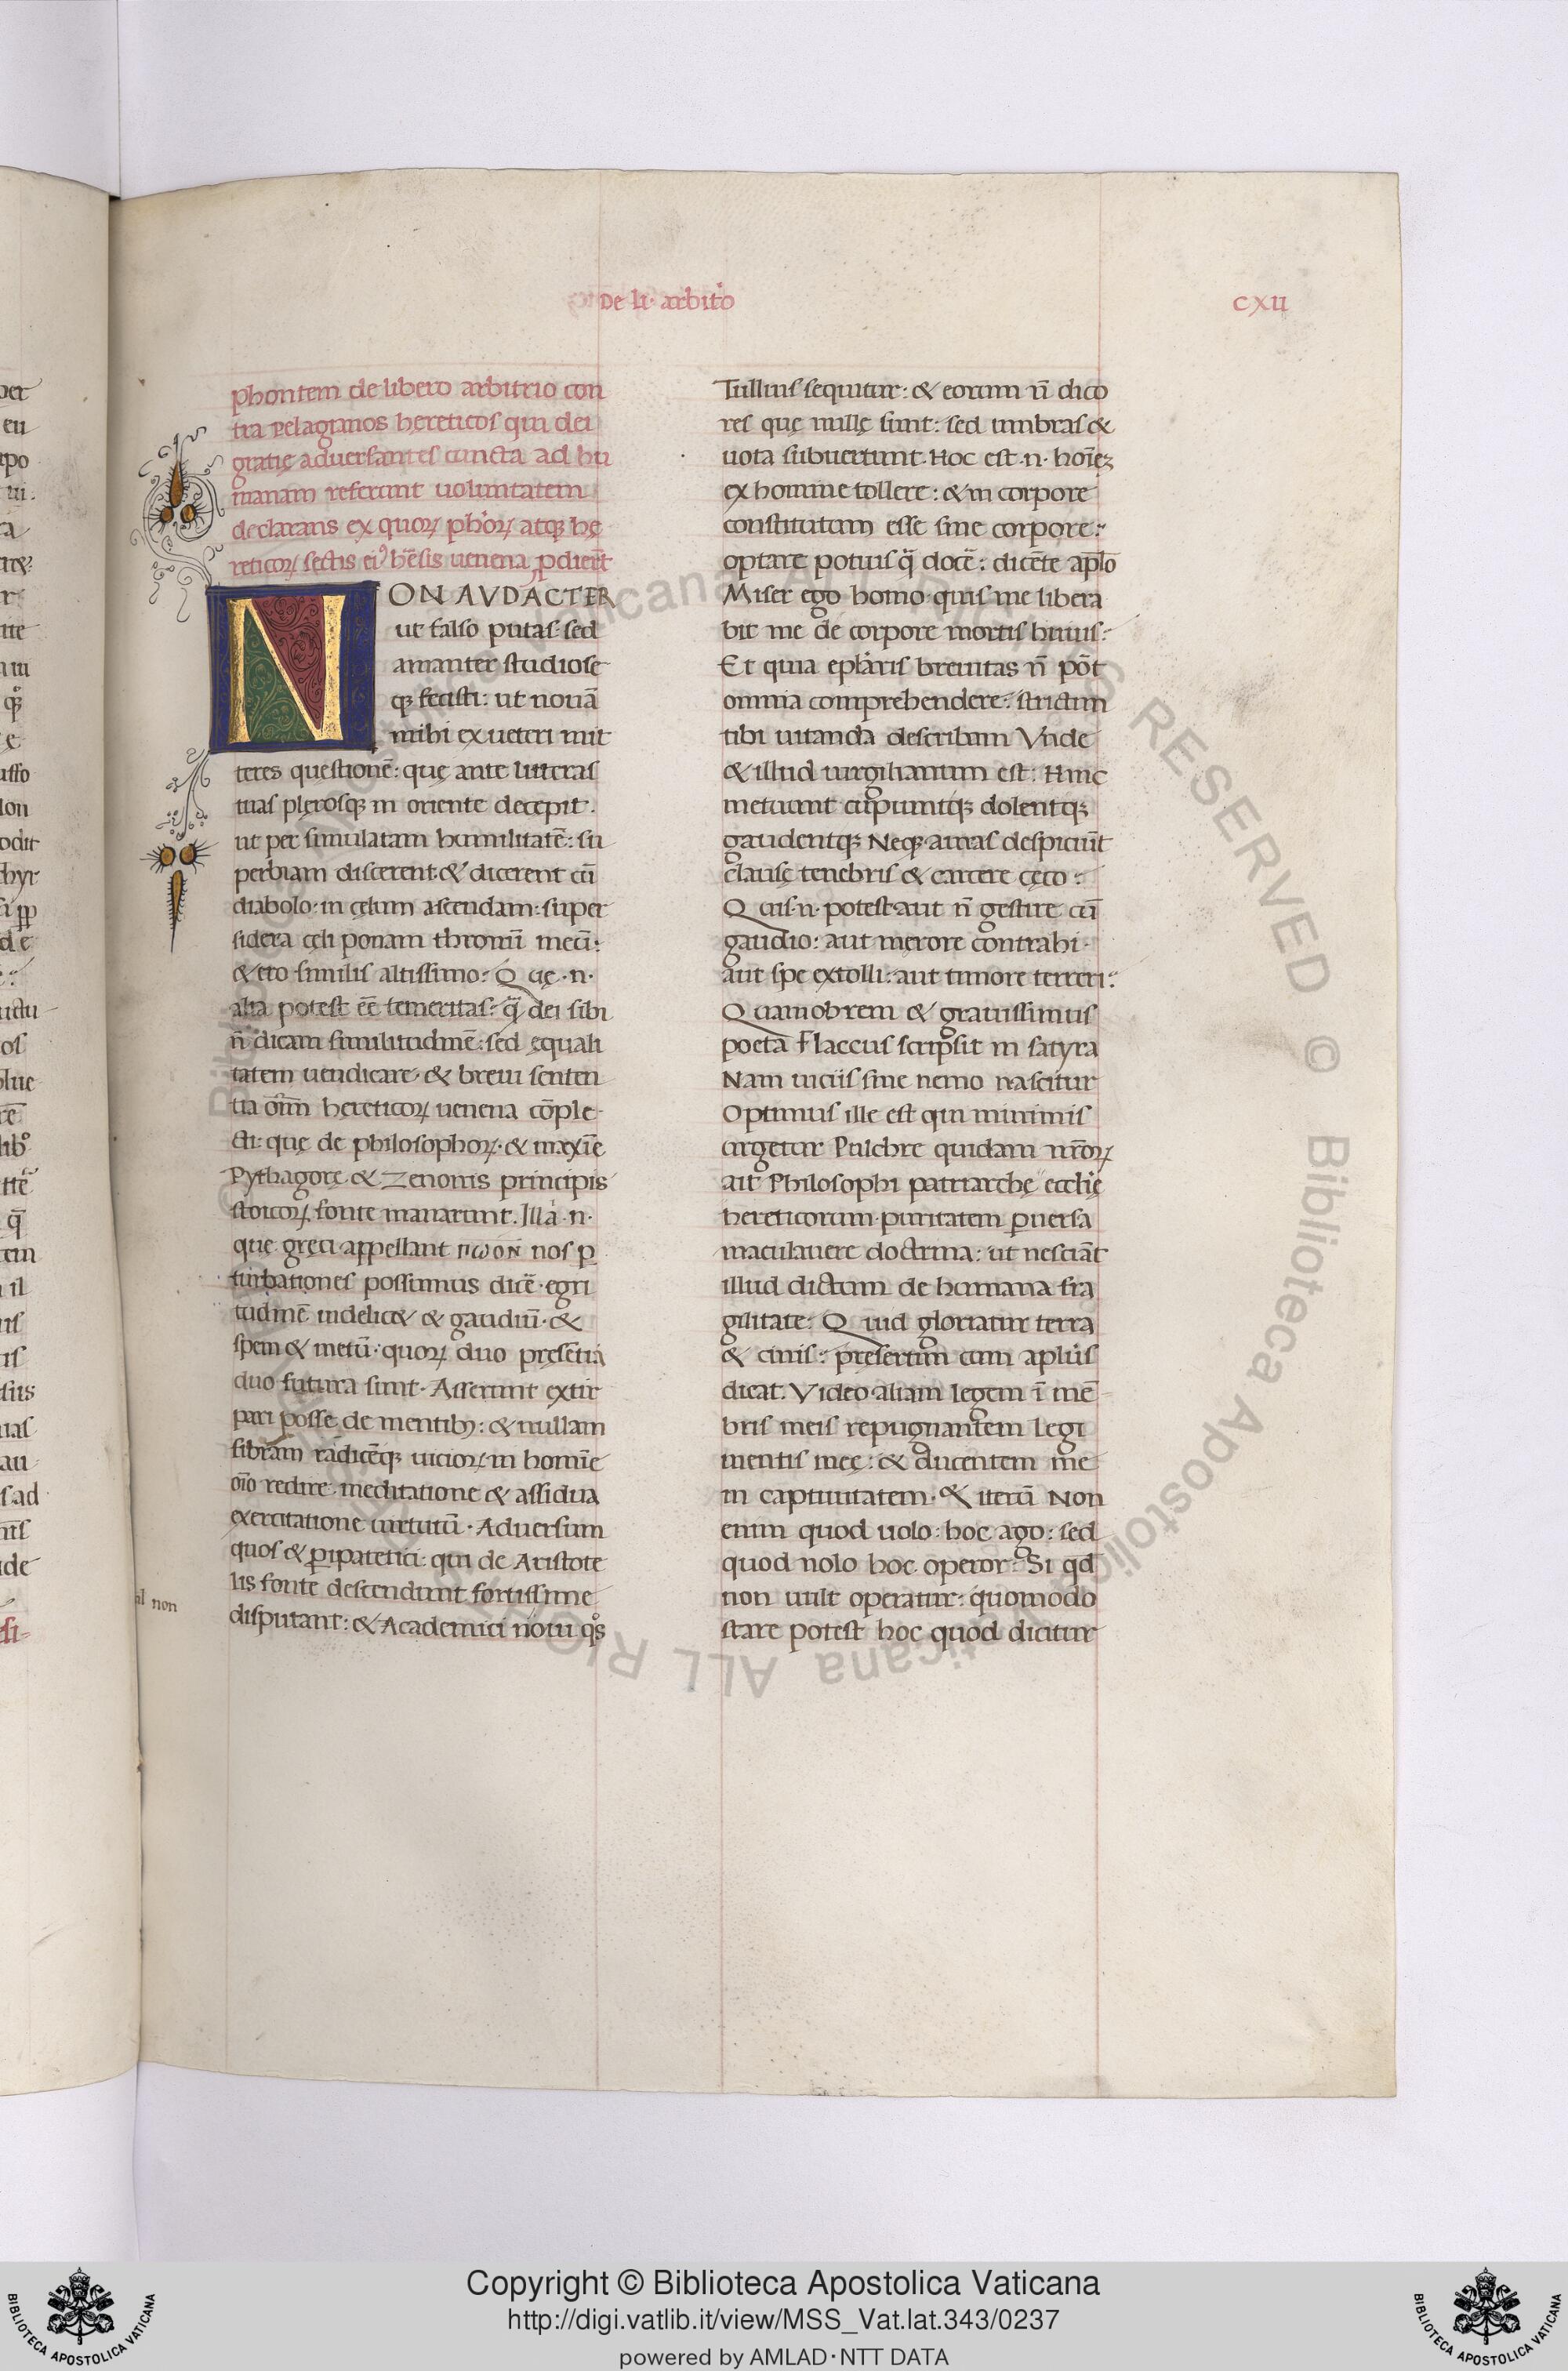 De li· arbit̊o
cxii
phontem de libero arbitrio con
tra pelagianos hereticos qui dei
gratię aduersantes cuncta ad hu
manam referunt uoluntatem
declarans ex quoꝝ ph̃oꝝ atqꝫ hę
reticoꝝ sectis eiꝰ hẽsis uenena ꝓdieñt
NON AVDACTER
ut falso putas· sed
amanter studiose
qꝫ fecisti: ut nouã
mihi ex ueteri mit
teres questionẽ: quę ante litteras
tuas plerosqꝫ in oriente decepit·
ut per simulatam humilitatẽ: su
perbiam discerent· & dicerent cũ
diabolo· in cęlum ascendam: super
sidera cęli ponam thronũ meũ:
& ero similis altissimo: Quę ·n·
alia potest eẽ temeritas: q̃ dei sibi
ñ dicam similitudinẽ: sed ęquali
tatem uendicare· & breui senten
tia om̃iũ hereticoꝝ uenena cõple
cti: quę de philosophoꝝ· & maxĩe
Pythagorę· & Zenonis principis
stoicoꝝ fonte manarunt. Illa ·n·
quę gręci appellant πωον nos ꝑ
turbationes possumus dicẽ· egri
tudinẽ uidelicet & gaudiũ· &
spem & metũ· quoꝝ duo pręsẽtia
duo futura sunt· Asserunt extir
pari posse de mentibꝫ: & nullam
fibram radicẽqꝫ uicioꝝ in homĩe
oĩo redire· meditatione & assidua
exercitatione uirtutũ· Aduersum
quos & ꝑipatetici: qui de Aristote
lis fonte descendunt fortissime
disputant: & Academici noui qͦs
al non
Tullius sequitur: & eorum ñ dico
res quę nullę sunt: sed umbras &
uota subuertunt· Hoc est ·n· hoĩeꝫ
ex homine tollere: & in corpore
constitutum esse sine corpore:
optare potius q̃ docẽ: dicẽte ap̃lo
Miser ego homo· quis me libera
bit me de corpore mortis huius:
Et quia eplaris breuitas ñ põt
omnia comprehendere: strictim
tibi uitanda describam Vnde
& illud uirgilianum est: Hinc
metuunt cupiuntqꝫ dolentqꝫ
gaudentqꝫ Neqꝫ auras despiciũt
clausę tenebris & carcere cęco:
Quis ·n· potest aut ñ gestire cũ
gaudio: aut merore contrahi·
aut spe extolli: aut timore terreri:
Quamobrem & grauissimus
poeta Flaccus scripsit in satyra
Nam uiciis sine nemo nascitur
Optimus ille est qui minimis
urgetur Pulchre quidam nr̃oꝝ
ait Philosophi patriarchę eccl̃ię
hereticorum· puritatem ꝑuersa
maculauere doctrina: ut nesciãt
illud dictum de humana fra
gilitate: Quid gloriatur terra
& cinis: pręsertim cum aplũs
dicat. Video aliam legem ĩ mẽ
bris meis repugnantem legi
mentis meę: & ducentem me
in captiuitatem· & iterũ Non
enim quod uolo: hoc ago: sed
quod nolo hoc operor: Si qd̃
non uult operatur: quomodo
stare potest hoc quod dicitur
Copyright © Biblioteca Apostolica Vaticana
http://digi.vatlib.it/view/MSS_Vat.lat.343/0237
powered by AMLAD·NTT DATA